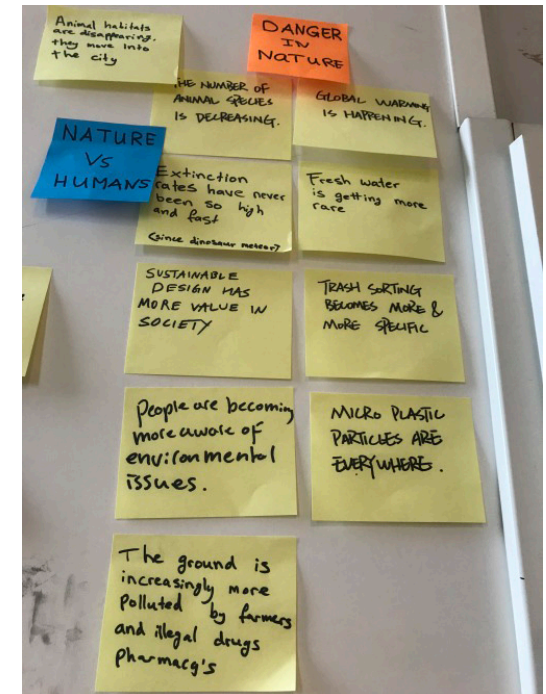 Animal habitats
are disappearing.
they move into
the city
DANGER
IN
NATURE
THE NUMBER OF
ANIMAL SPECIES
IS DECREASING.
GLOBAL WARMING
IS HAPPENING.
NATURE
VS
HUMANS
Extinction
rates have never
been so high
and fast
(since dinosaur meteor?)
Fresh water
is getting more
rare
SUSTAINABLE
DESIGN HAS
MORE VALUE IN
SOCIETY
TRASH SORTING
BECOMES MORE &
MORE SPECIFIC
People are becoming
more aware of
environmental
issues.
MICRO PLASTIC
PARTICLES ARE
EVERYWHERE.
The ground is
increasingly more
Polluted by farmers
and illegal drugs
pharmacy's